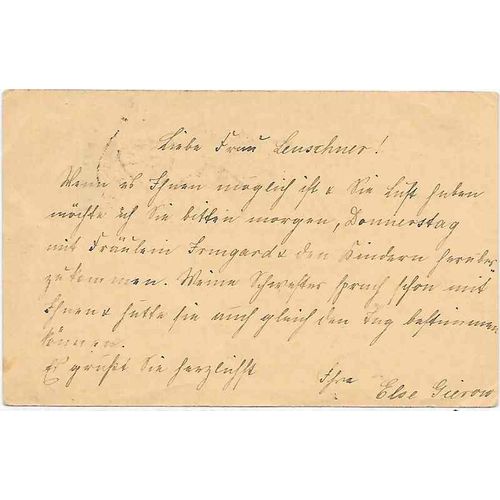 Liebe Frau Leuschner!
Wenn es Ihnen möglich ist & Sie Lust haben
möchte ich Sie bitten morgen, Donnerstag
mit Fräulein Irmgard & den Kindern herüber
zu kommen. Meine Schwester sprach schon mit
Ihnen & hatte sie auch gleich den Tag bestimmen
können.
Es grüßt Sie herzlichst
Ihre Else Gierow